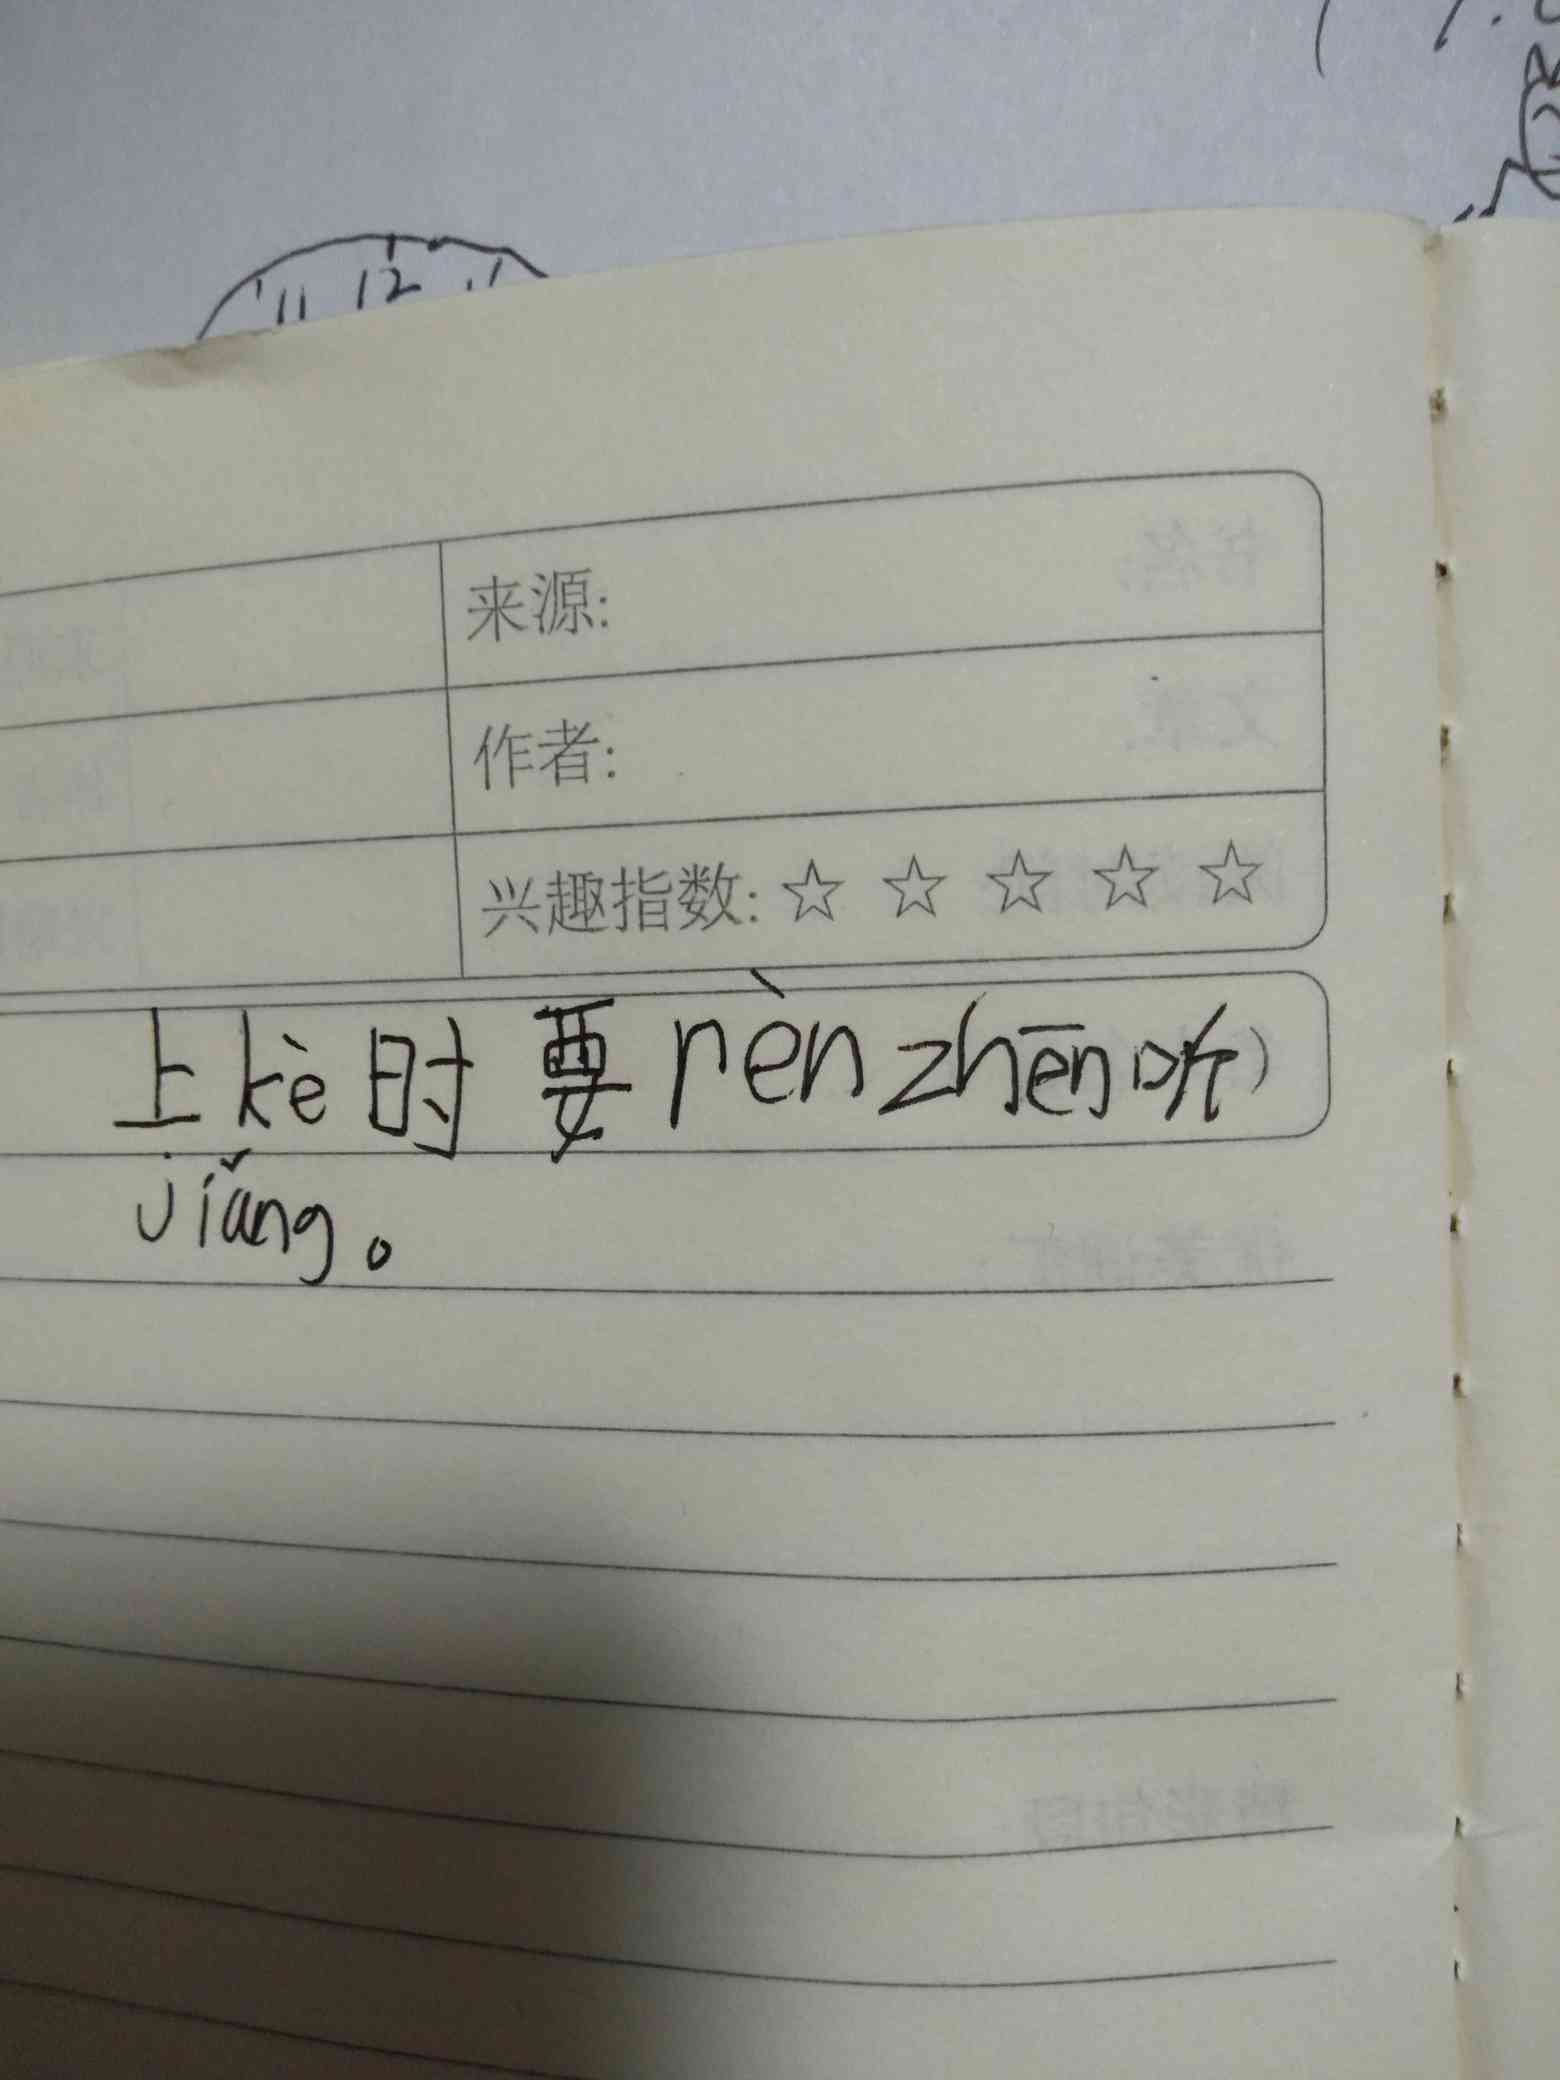 11 12
来源:
作者:
兴趣指数: ☆ ☆ ☆ ☆ ☆
上kè时要rèn zhēn听
jiǎng。